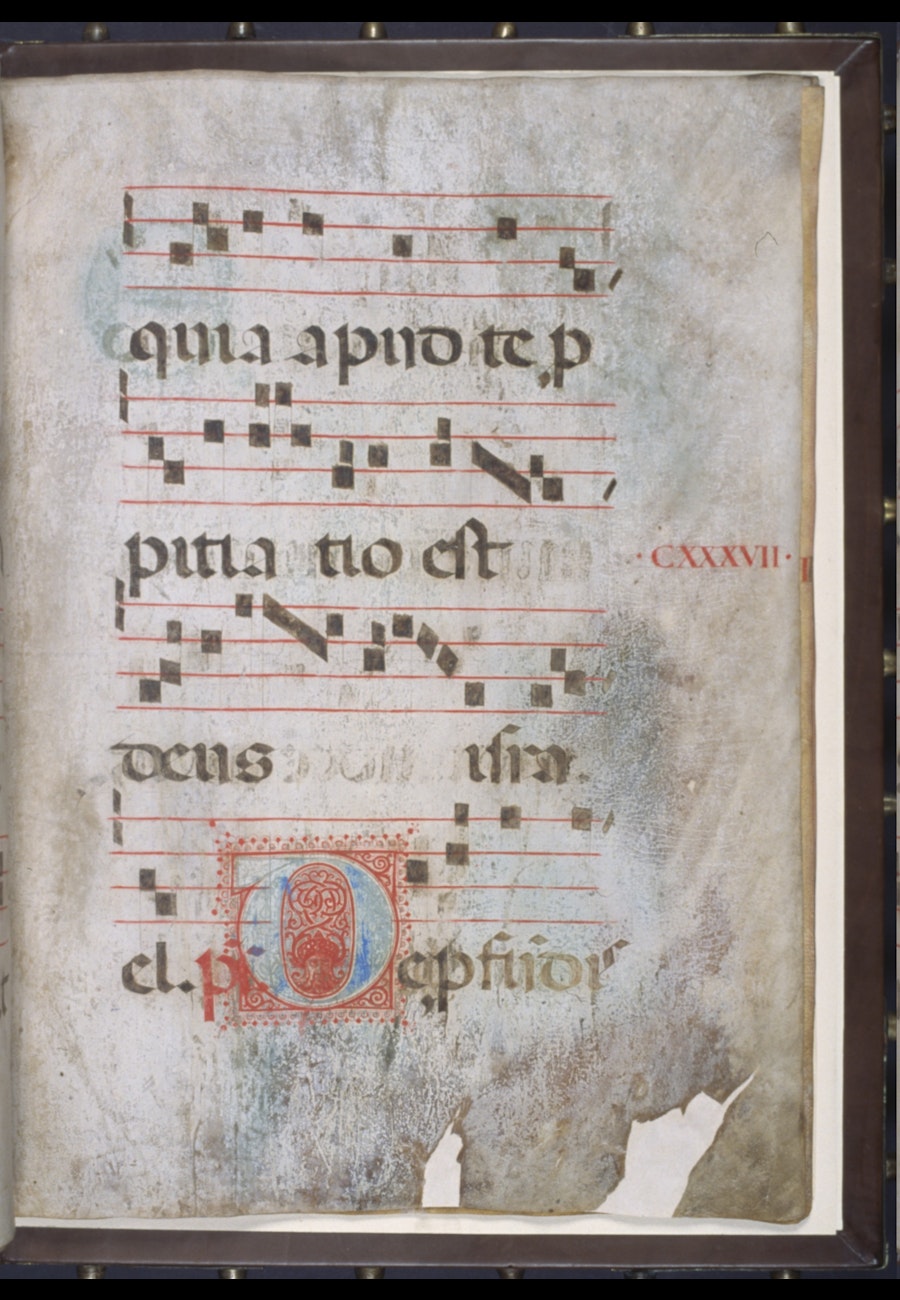 quia apud te p
pitia tio est
·CXXXVII·
deus isra
el. ps. De pfundis